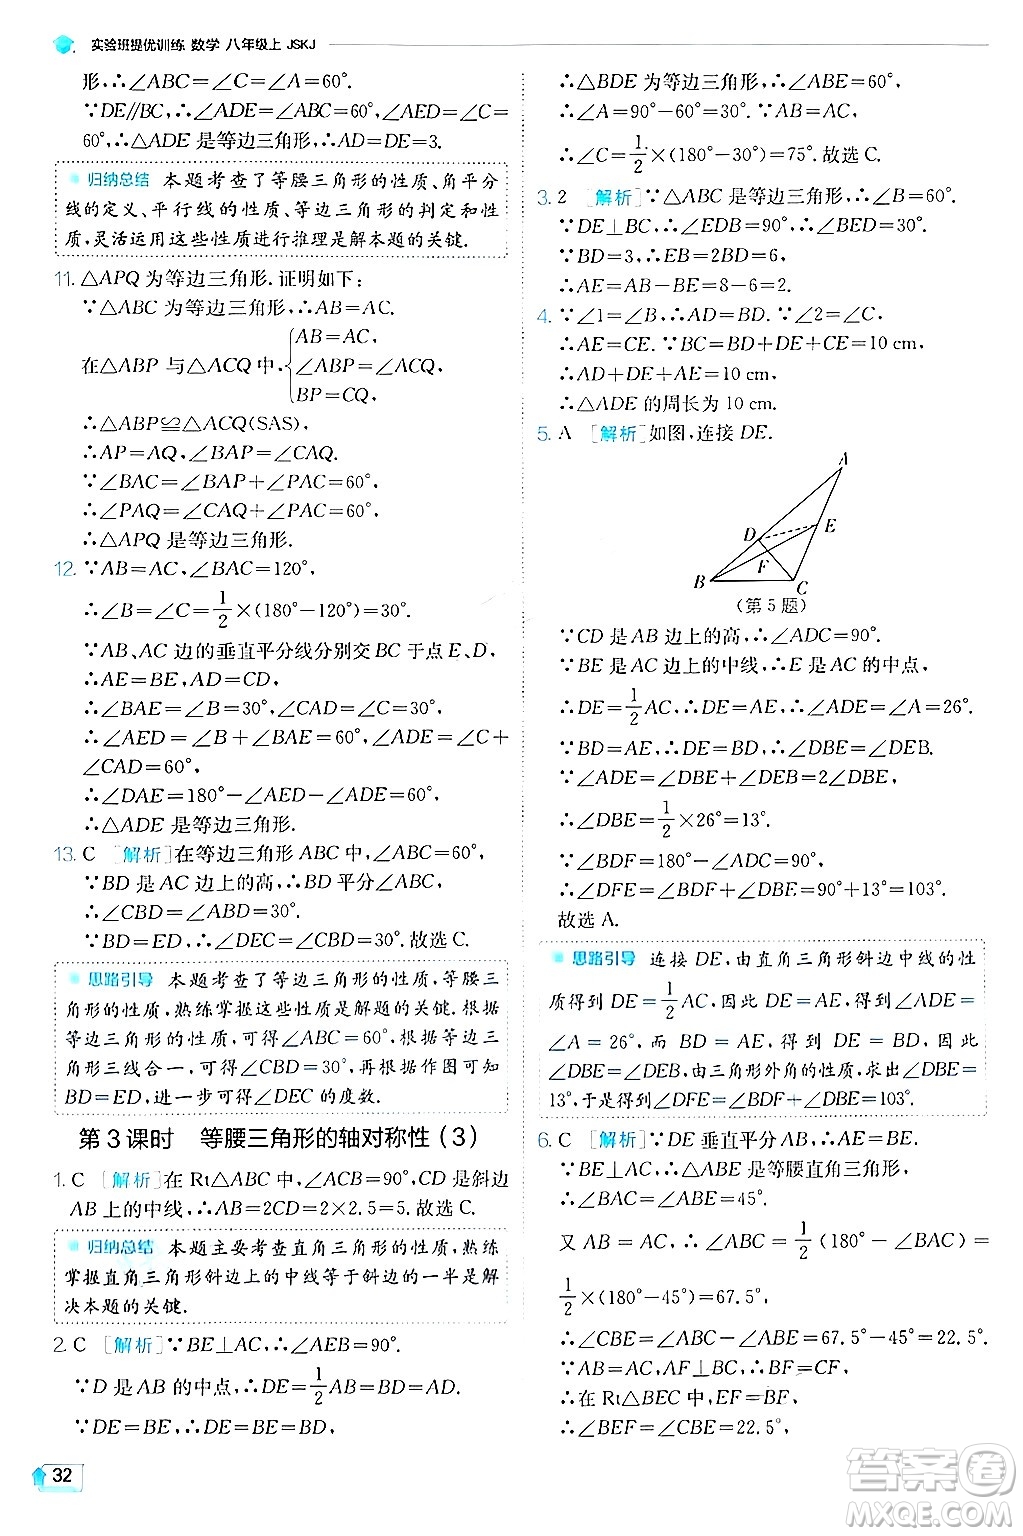 实验班提优训练 数学 八年级上 JSKJ
形,∴∠ABC=∠C=∠A=60°.
∵DE//BC,∴∠ADE=∠ABC=60°,∠AED=∠C=
60°,∴△ADE是等边三角形,∴AD=DE=3.
归纳总结 本题考查了等腰三角形的性质、角平分
线的定义、平行线的性质、等边三角形的判定和性
质,灵活运用这些性质进行推理是解本题的关键.
11. △APQ为等边三角形.证明如下:
∵△ABC为等边三角形,∴AB=AC.
在△ABP与△ACQ中,{AB=AC,
∠ABP=∠ACQ,
BP=CQ,
∴△ABP≌△ACQ(SAS)
∴AP=AQ,∠BAP=∠CAQ.
∵∠BAC=∠BAP+∠PAC=60°,
∴∠PAQ=∠CAQ+∠PAC=60°,
∴△APQ是等边三角形.
12. ∵AB=AC,∠BAC=120°,
∴∠B=∠C=1/2×(180°-120°)=30°.
∵AB、AC边的垂直平分线分别交BC于点E、D,
∴AE=BE,AD=CD.
∴∠BAE=∠B=30°,∠CAD=∠C=30°,
∴∠AED=∠B+∠BAE=60°,∠ADE=∠C+
∠CAD=60°.
∴∠DAE=180°-∠AED-∠ADE=60°.
∴△ADE是等边三角形.
13. C [解析]在等边三角形ABC中,∠ABC=60°,
∵BD是AC边上的高,∴BD平分∠ABC,
∴∠CBD=∠ABD=30°.
∵BD=ED,∴∠DEC=∠CBD=30°.故选C.
思路引导 本题考查了等边三角形的性质、等腰三
角形的性质,熟练掌握这些性质是解题的关键.根据
等边三角形的性质,可得∠ABC=60°,根据等边三
角形三线合一,可得∠CBD=30°,再根据作图可知
BD=ED,进一步可得∠DEC的度数.
第3课时 等腰三角形的轴对称性(3)
1. C [解析]在Rt△ABC中,∠ACB=90°,CD是斜边
AB上的中线,∴AB=2CD=2×2.5=5.故选C.
归纳总结 本题主要考查直角三角形的性质,熟练
掌握直角三角形斜边上的中线等于斜边的一半是解
决本题的关键.
2. C [解析]∵BE⊥AC,∴∠AEB=90°.
∵D是AB的中点,∴DE=1/2AB=BD=AD.
∵DE=BE,∴DE=BE=BD,
∴△BDE为等边三角形,∴∠ABE=60°,
∴∠A=90°-60°=30°.∵AB=AC,
∴∠C=1/2×(180°-30°)=75°.故选C.
3. 2 [解析]∵△ABC是等边三角形,∴∠B=60°.
∵DE⊥BC,∴∠EDB=90°,∠BED=30°.
∵BD=3,∴BE=2BD=6,
∴AE=AB-BE=8-6=2.
4. ∵∠1=∠B,∴AD=BD.∵∠2=∠C,
∴AE=CE.∵BC=BD+DE+CE=10 cm,
∴AD+DE+AE=10 cm,
∴△ADE的周长为10 cm.
5. A [解析]如图,连接DE.
A
D
E
F
B
C
(第5题)
∵CD是AB边上的高,∴∠ADC=90°.
∵BE是AC边上的中线,∴E是AC的中点,
∴DE=1/2AC,∴DE=AE,∴∠ADE=∠A=26°.
∵BD=AE,∴DE=BD,∴∠DBE=∠DEB.
∵∠ADE=∠DBE+∠DEB=2∠DBE,
∴∠DBE=1/2×26°=13°.
∵∠BDF=180°-∠ADC=90°,
∴∠DFE=∠BDF+∠DBE=90°+13°=103°.
故选A.
思路引导 连接DE,由直角三角形斜边中线的性
质得到DE=1/2AC,因此DE=AE,得到∠ADE=
∠A=26°,而BD=AE,因此BD=DE,得到
∠DBE=∠DEB,由三角形外角的性质,求出∠DBE=
13°,于是得到∠DFE=∠BDF+∠DBE=103°.
6. C [解析]∵DE垂直平分AB,∴AE=BE.
∵BE⊥AC,∴△ABE是等腰直角三角形,
∴∠BAC=∠ABE=45°.
又AB=AC,∴∠ABC=1/2(180°-∠BAC)=
1/2×(180°-45°)=67.5°,
∴∠CBE=∠ABC-∠ABE=67.5°-45°=22.5°.
∵AB=AC,AF⊥BC,∴BF=CF,
∴在Rt△BEC中,EF=BF,
∴∠BEF=∠CBE=22.5°.
32
答案圈
MXQE.COM